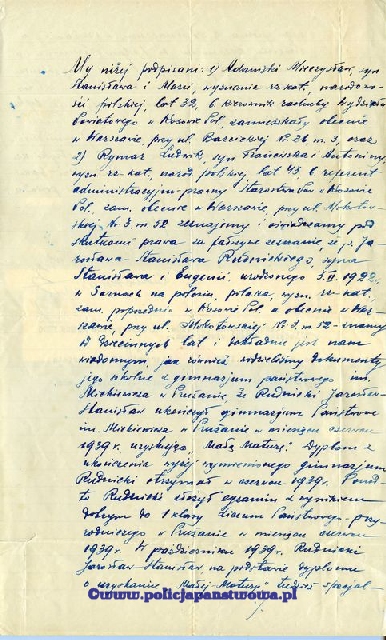 My niżej podpisani: 1) Adamski Mieczysław, syn
Stanisława i Marii, wyznanie rz.-kat., narodowo-
ści polskiej, lat 39, b. kierownik Wydziału
Światowego w Kosowie Pol. zamieszkały obecnie
w Warszawie, przy ul. m. 3, oraz
2) Rymar Ludwik, syn Franciszka i Antoniny,
wyzn. rz.-kat., narod. polskiej, lat 45, b. referent
administracyjno-prawny Starostwa w Kosowie
Pol., zam. obecnie w Warszawie, przy ul. Mokotow-
skiej Nr. 3 m. 52 zeznajemy i oświadczamy pod
skutkami prawa za fałszywe zeznanie, że p. Ja-
rosława-Stanisława Rudnickiego, syna
Stanisława i Eugenii, urodzonego 5. II. 1922 r.
w Samach na polesiu, polaka, wyzn. rz.-kat.
zam. poprzednio w Kosowie Pol. a obecnie w War-
szawie, przy ul. Mokotowskiej Nr. 3 m. 52 - znamy
od dziecinnych lat i dokładnie jest nam
wiadomym, jak również widzieliśmy dokumenty
jego szkolne z gimnazjum państwowego im.
Mickiewicza w Prużanie, że Rudnicki Jarosław-
Stanisław ukończył gimnazjum Państwowe
im. Mickiewicza w Prużanie w miesiącu czerwcu
1939 r. uzyskując „Małą Maturę". Dyplom z
ukończenia wyżej wymienionego gimnazjum
Rudnicki otrzymał w czerwcu 1939 r. Ponad-
to Rudnicki złożył egzamin z wynikiem
dobrym do I klasy Liceum Państwowego-przy-
rodniczego w Prużanie w miesiącu czerwcu
1939 r. W październiku 1939 r. Rudnicki
Jarosław Stanisław na podstawie dyplomu
o uzyskaniu „Małej-Matury"
©www.policjapanstwowa.pl